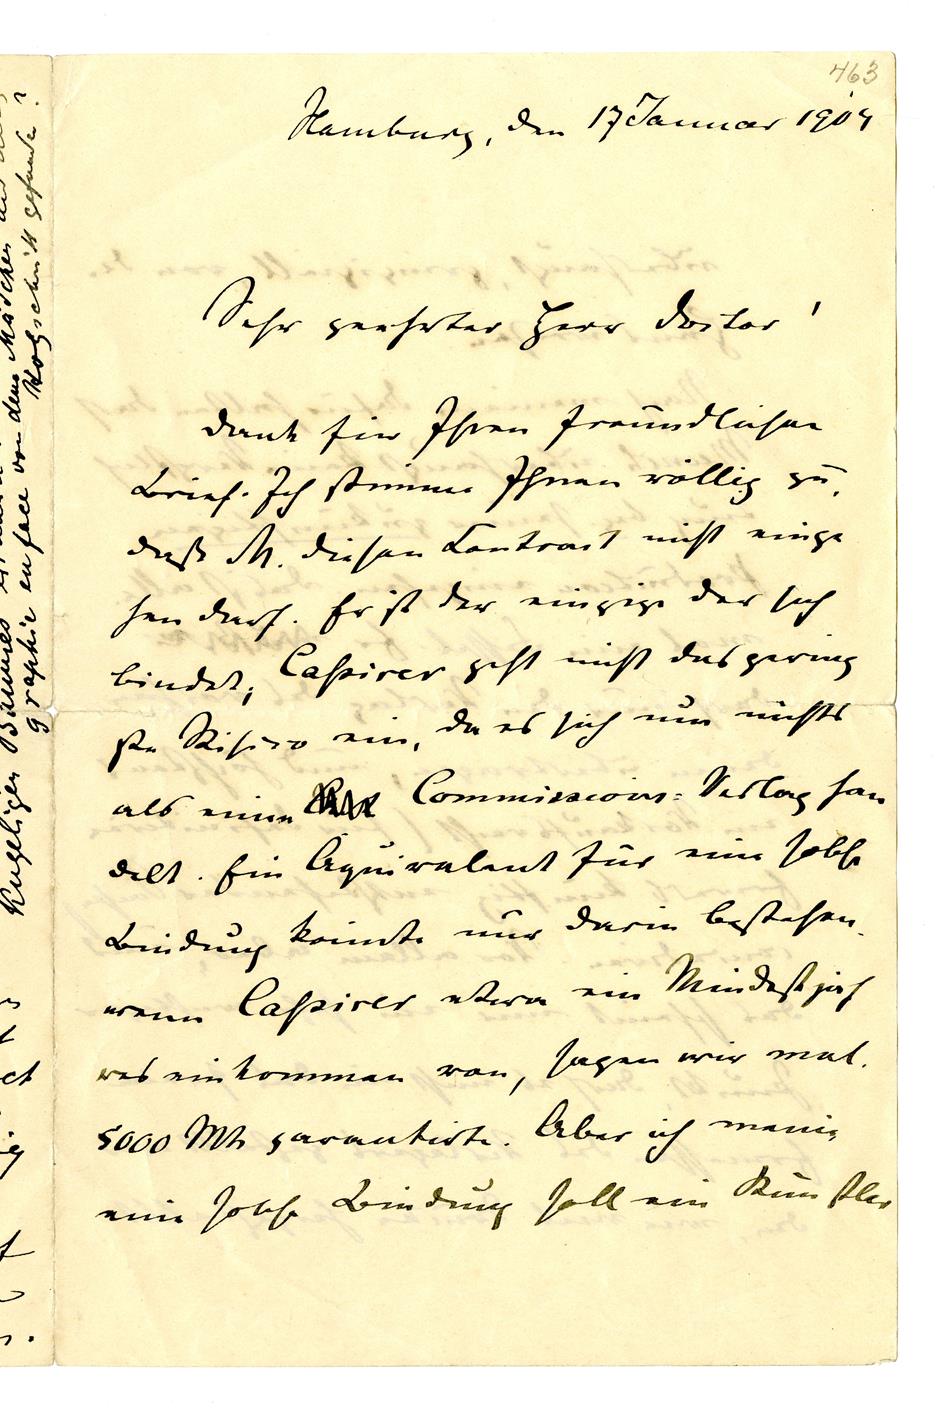 463
Hamburg, den 17 Januar 1904
Sehr geehrter Herr Doctor!
Dank für Ihren freundlichen
Brief. Ich stimme Ihnen völlig zu,
daß M. diesen Contract nicht einge
hen darf. Er ist der einzige der sich
bindet, Caßirer geht nicht das gering
ste Risico ein, da es sich um nichts
als einen Commissions-Verlag han
delt. Ein Äquivalent für eine solche
Bindung könnte nur darin bestehen,
wenn Caßirer etwa ein Mindestjah
reseinkommen von, sagen wir mal.
5000 Mk garantirte. Aber ich meine,
eine solche Bindung soll ein Künstler
kugeligen Baumes
graphie en face von dem Mädchen
Holzschnitt gefunden?